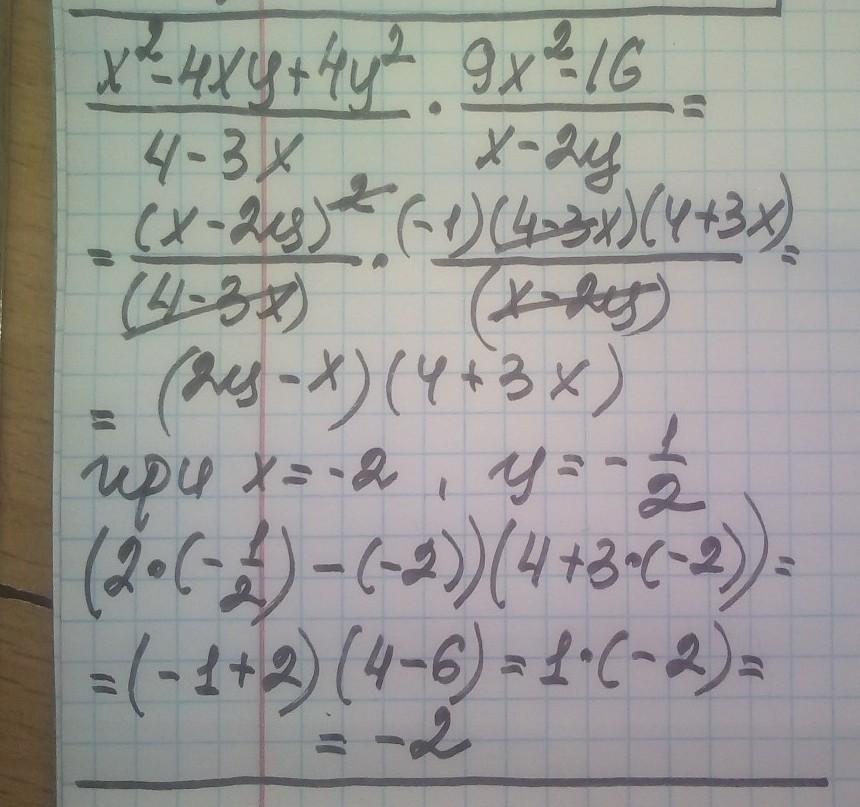 x² - 4xy + 4y² / 4 - 3x · 9x² - 16 / x - 2y =
= (x - 2y)² / (4 - 3x) · (-1)(4 - 3x)(4 + 3x) / (x - 2y) =
= (2y - x)(4 + 3x)
при x = -2, y = -1/2
(2·(-1/2) - (-2))(4 + 3·(-2)) =
= (-1 + 2)(4 - 6) = 1·(-2) =
= -2